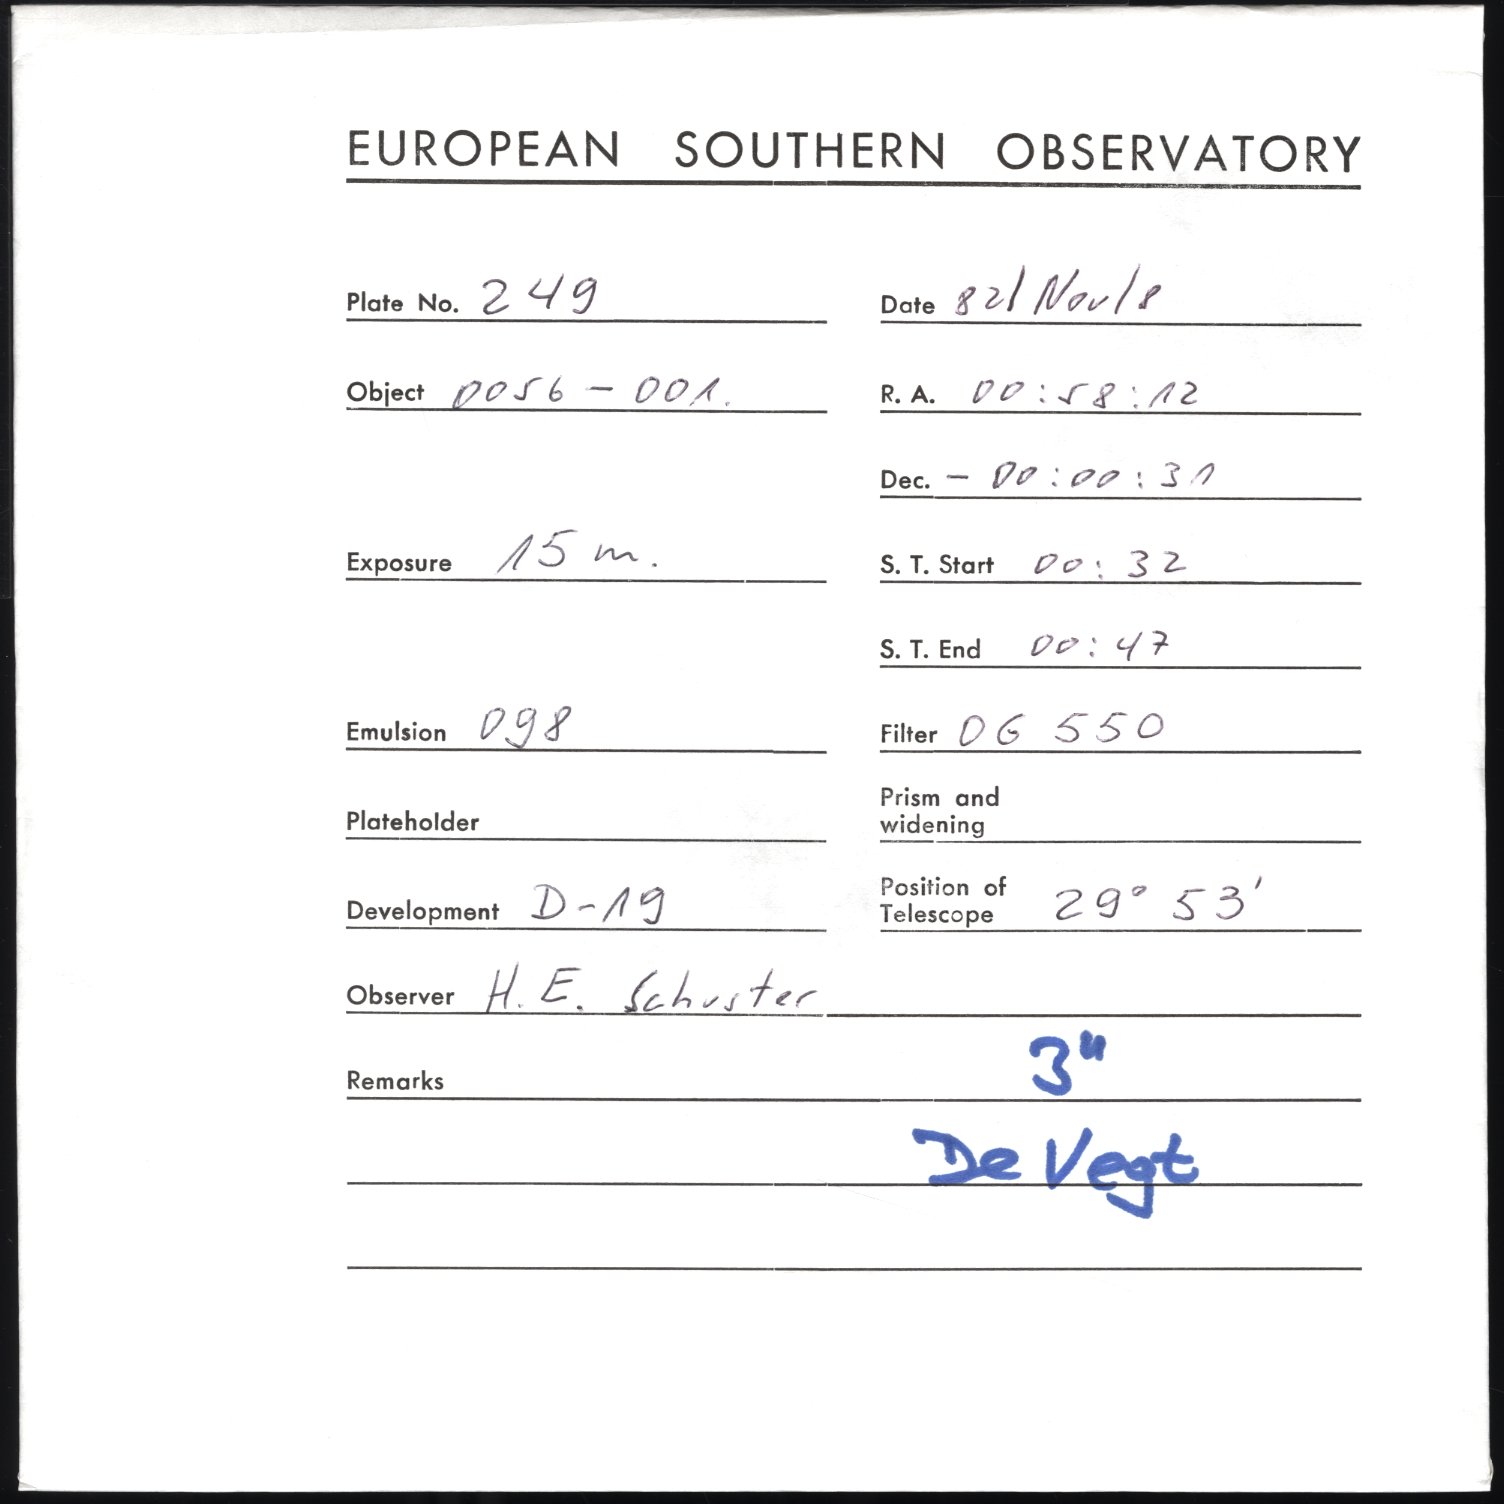 EUROPEAN SOUTHERN OBSERVATORY
Plate No. 249
Date 82/Nov/8
Object 0056-001.
R. A. 00:58:12
Dec. - 00:00:31
Exposure 15 m.
S. T. Start 00:32
S. T. End 00:47
Emulsion 098
Filter OG 550
Plateholder
Prism and
widening
Development D-19
Position of
Telescope 29° 53'
Observer H. E. Schuster
Remarks 3"
De Vegt